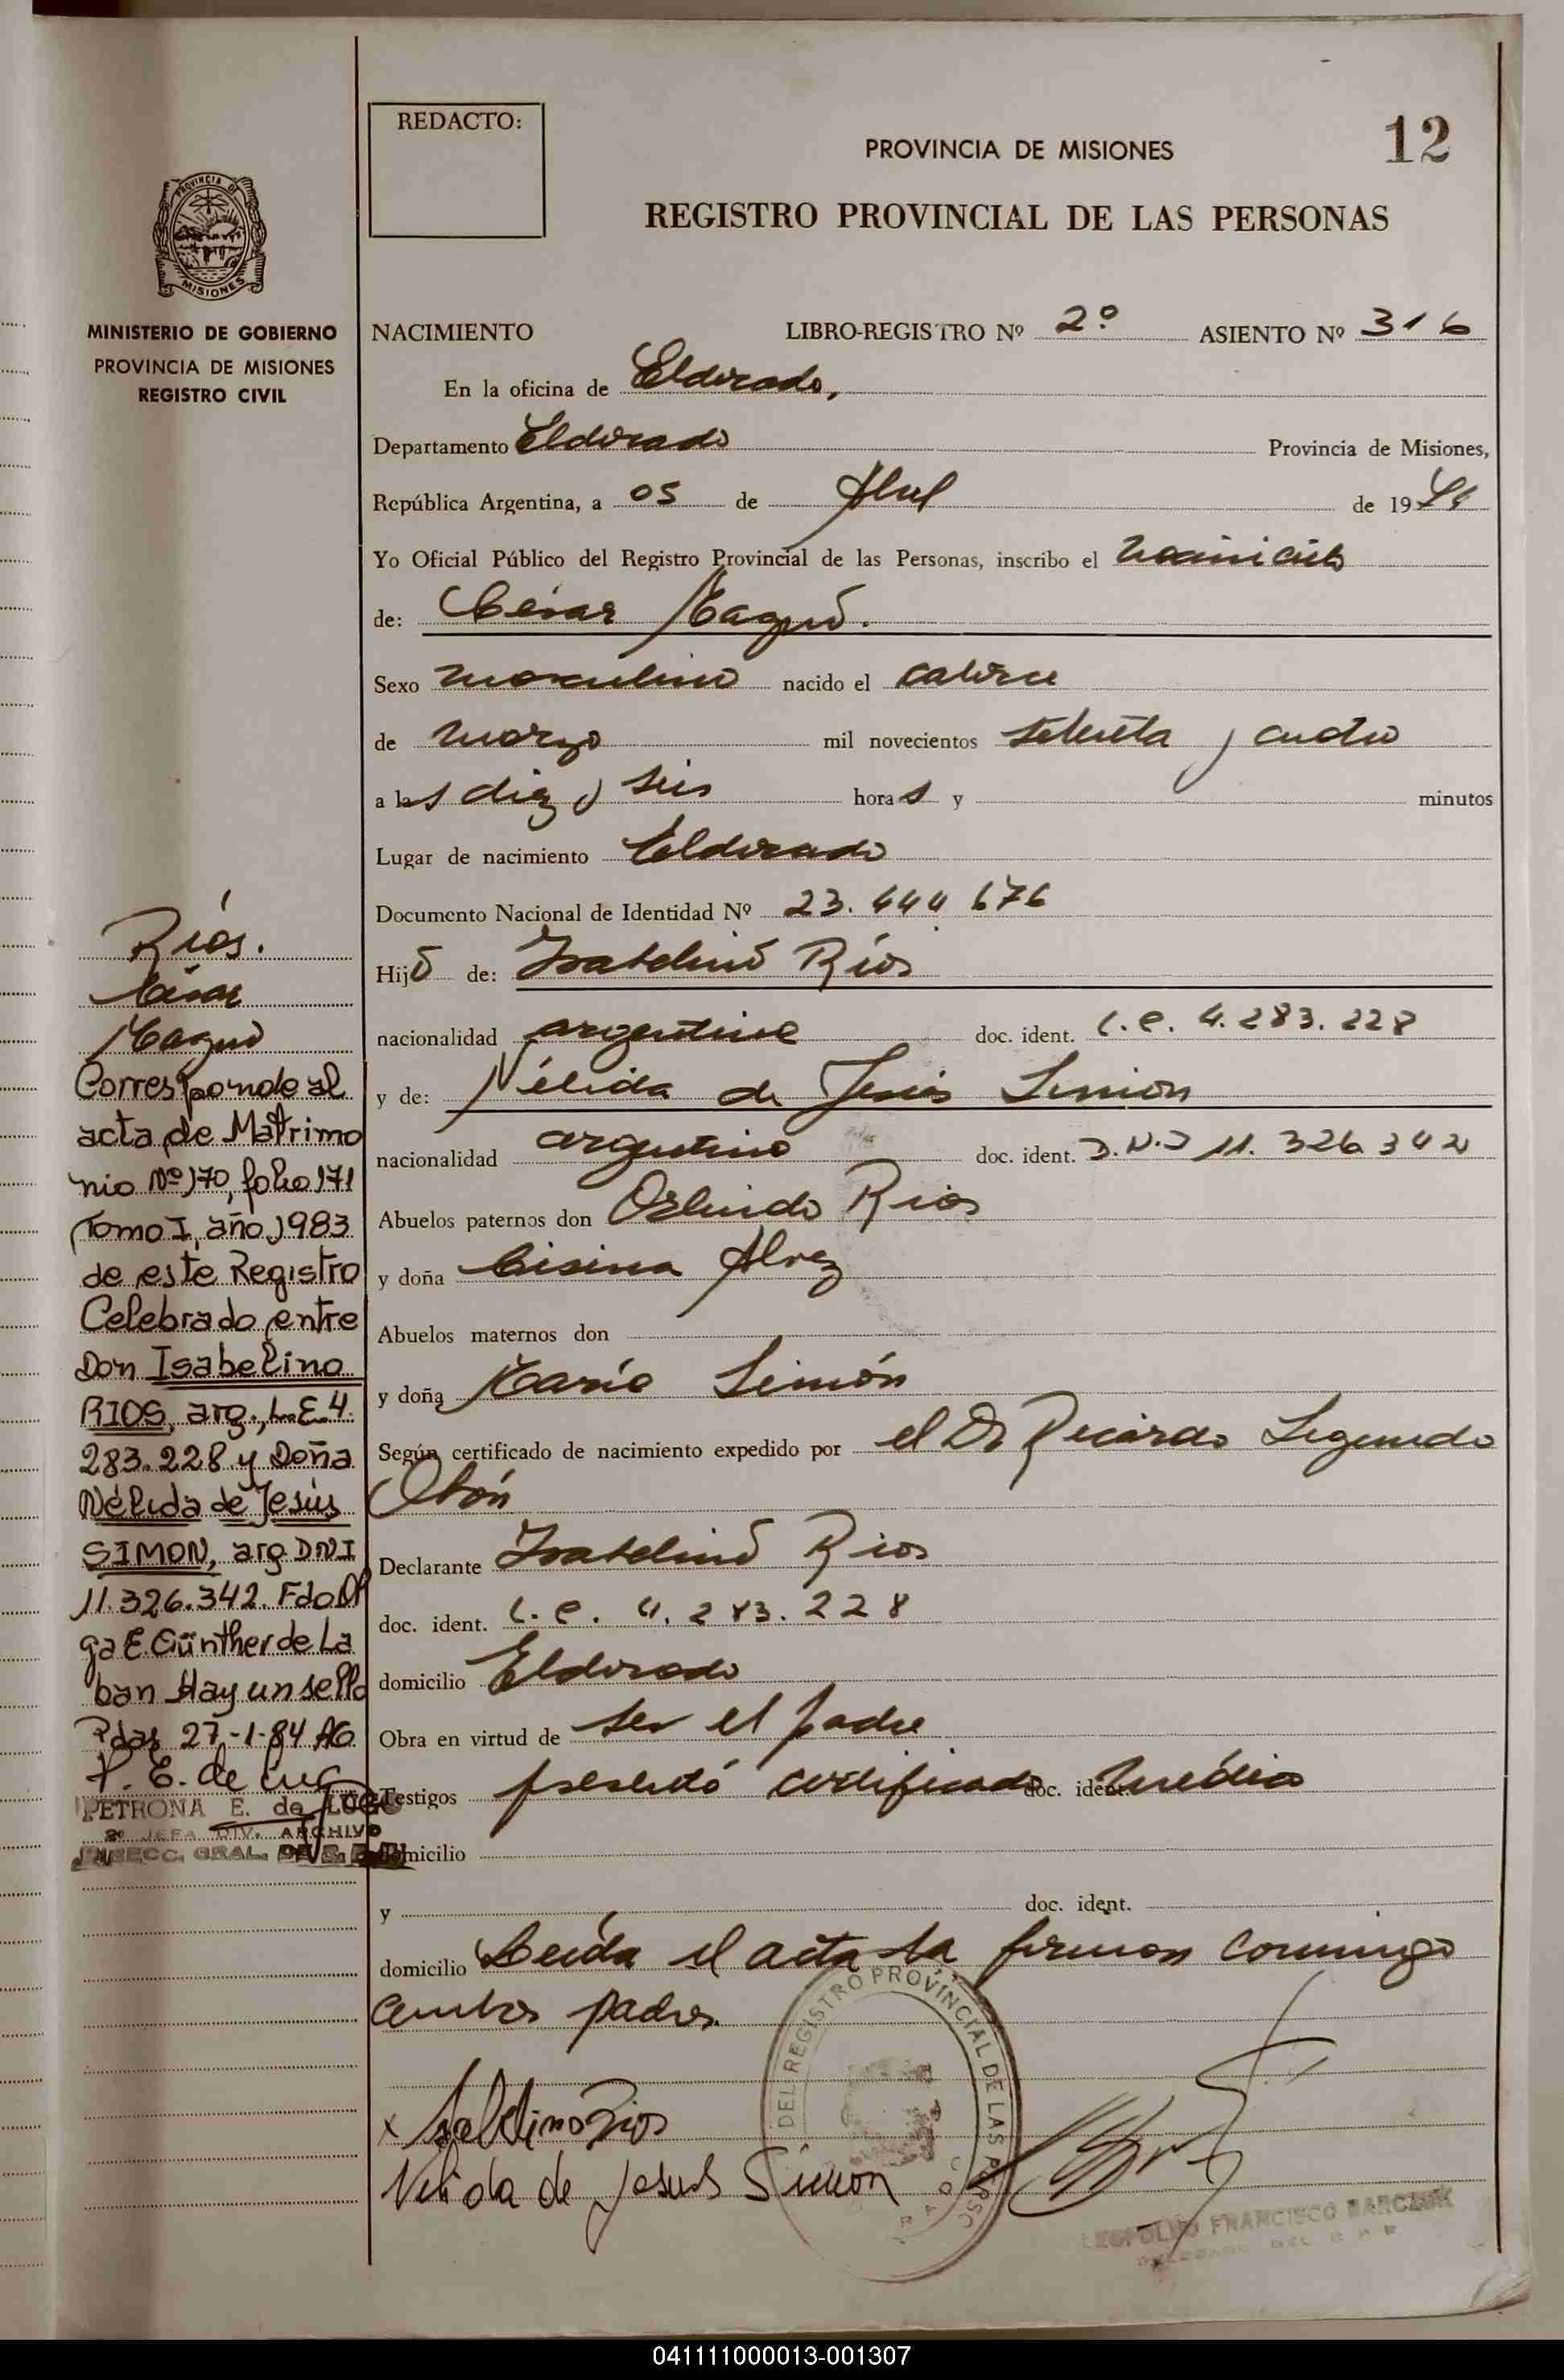 REDACTO:
PROVINCIA DE MISIONES
12
REGISTRO PROVINCIAL DE LAS PERSONAS
PROVINCIA DE
MISIONES
MINISTERIO DE GOBIERNO
PROVINCIA DE MISIONES
REGISTRO CIVIL
NACIMIENTO LIBRO-REGISTRO Nº 2º ASIENTO Nº 316
En la oficina de Eldorado,
Departamento Eldorado Provincia de Misiones,
República Argentina, a 05 de Abril de 19
Yo Oficial Público del Registro Provincial de las Personas, inscribo el nacimiento
de: César Magno.
Sexo masculino nacido el catorce
de marzo mil novecientos setenta y cuatro
a las diez y seis horas y minutos
Lugar de nacimiento Eldorado
Documento Nacional de Identidad Nº 23.444 676
Hijo de: Isabelino Ríos
nacionalidad argentina doc. ident. L.E. 4.283.228
y de: Nélida de Jesús Simón
nacionalidad argentina doc. ident. D.N.I 11.326.342
Abuelos paternos don Orlindo Rios
y doña Alvez
Abuelos maternos don
y doña María Simón
Según certificado de nacimiento expedido por el Dr Ricardo Segundo
Obón
Declarante Isabelino Rios
doc. ident. L.E. 4.283.228
domicilio Eldorado
Obra en virtud de ser el padre
Testigos presentó certificado doc. ident. médico
domicilio
y doc. ident.
domicilio Leída el acta la firman conmigo
ambos padres.
x Isabelino Rios
Nelida de Jesus Simon
DEL REGISTRO PROVINCIAL DE LAS PERSO
LEOPOLDO FRANCISCO BARCZUK
Ríos.
César
Magno
Corresponde al
acta de Matrimo
nio Nº 170, folio 171
Tomo I, año 1983
de este Registro
Celebrado entre
Don Isabelino
RIOS, arg., L.E. 4.
283.228 y Doña
Nélida de Jesús
SIMON, arg DNI
11.326.342. Fdo Ol
ga E. Günther de La
ban Hay un sello
Pdas 27-1-84 AG
P. E. de Lugo
PETRONA E. de LUGO
2º JEFA DIV. ARCHIVO
DIRECC. GRAL. DE
041111000013-001307